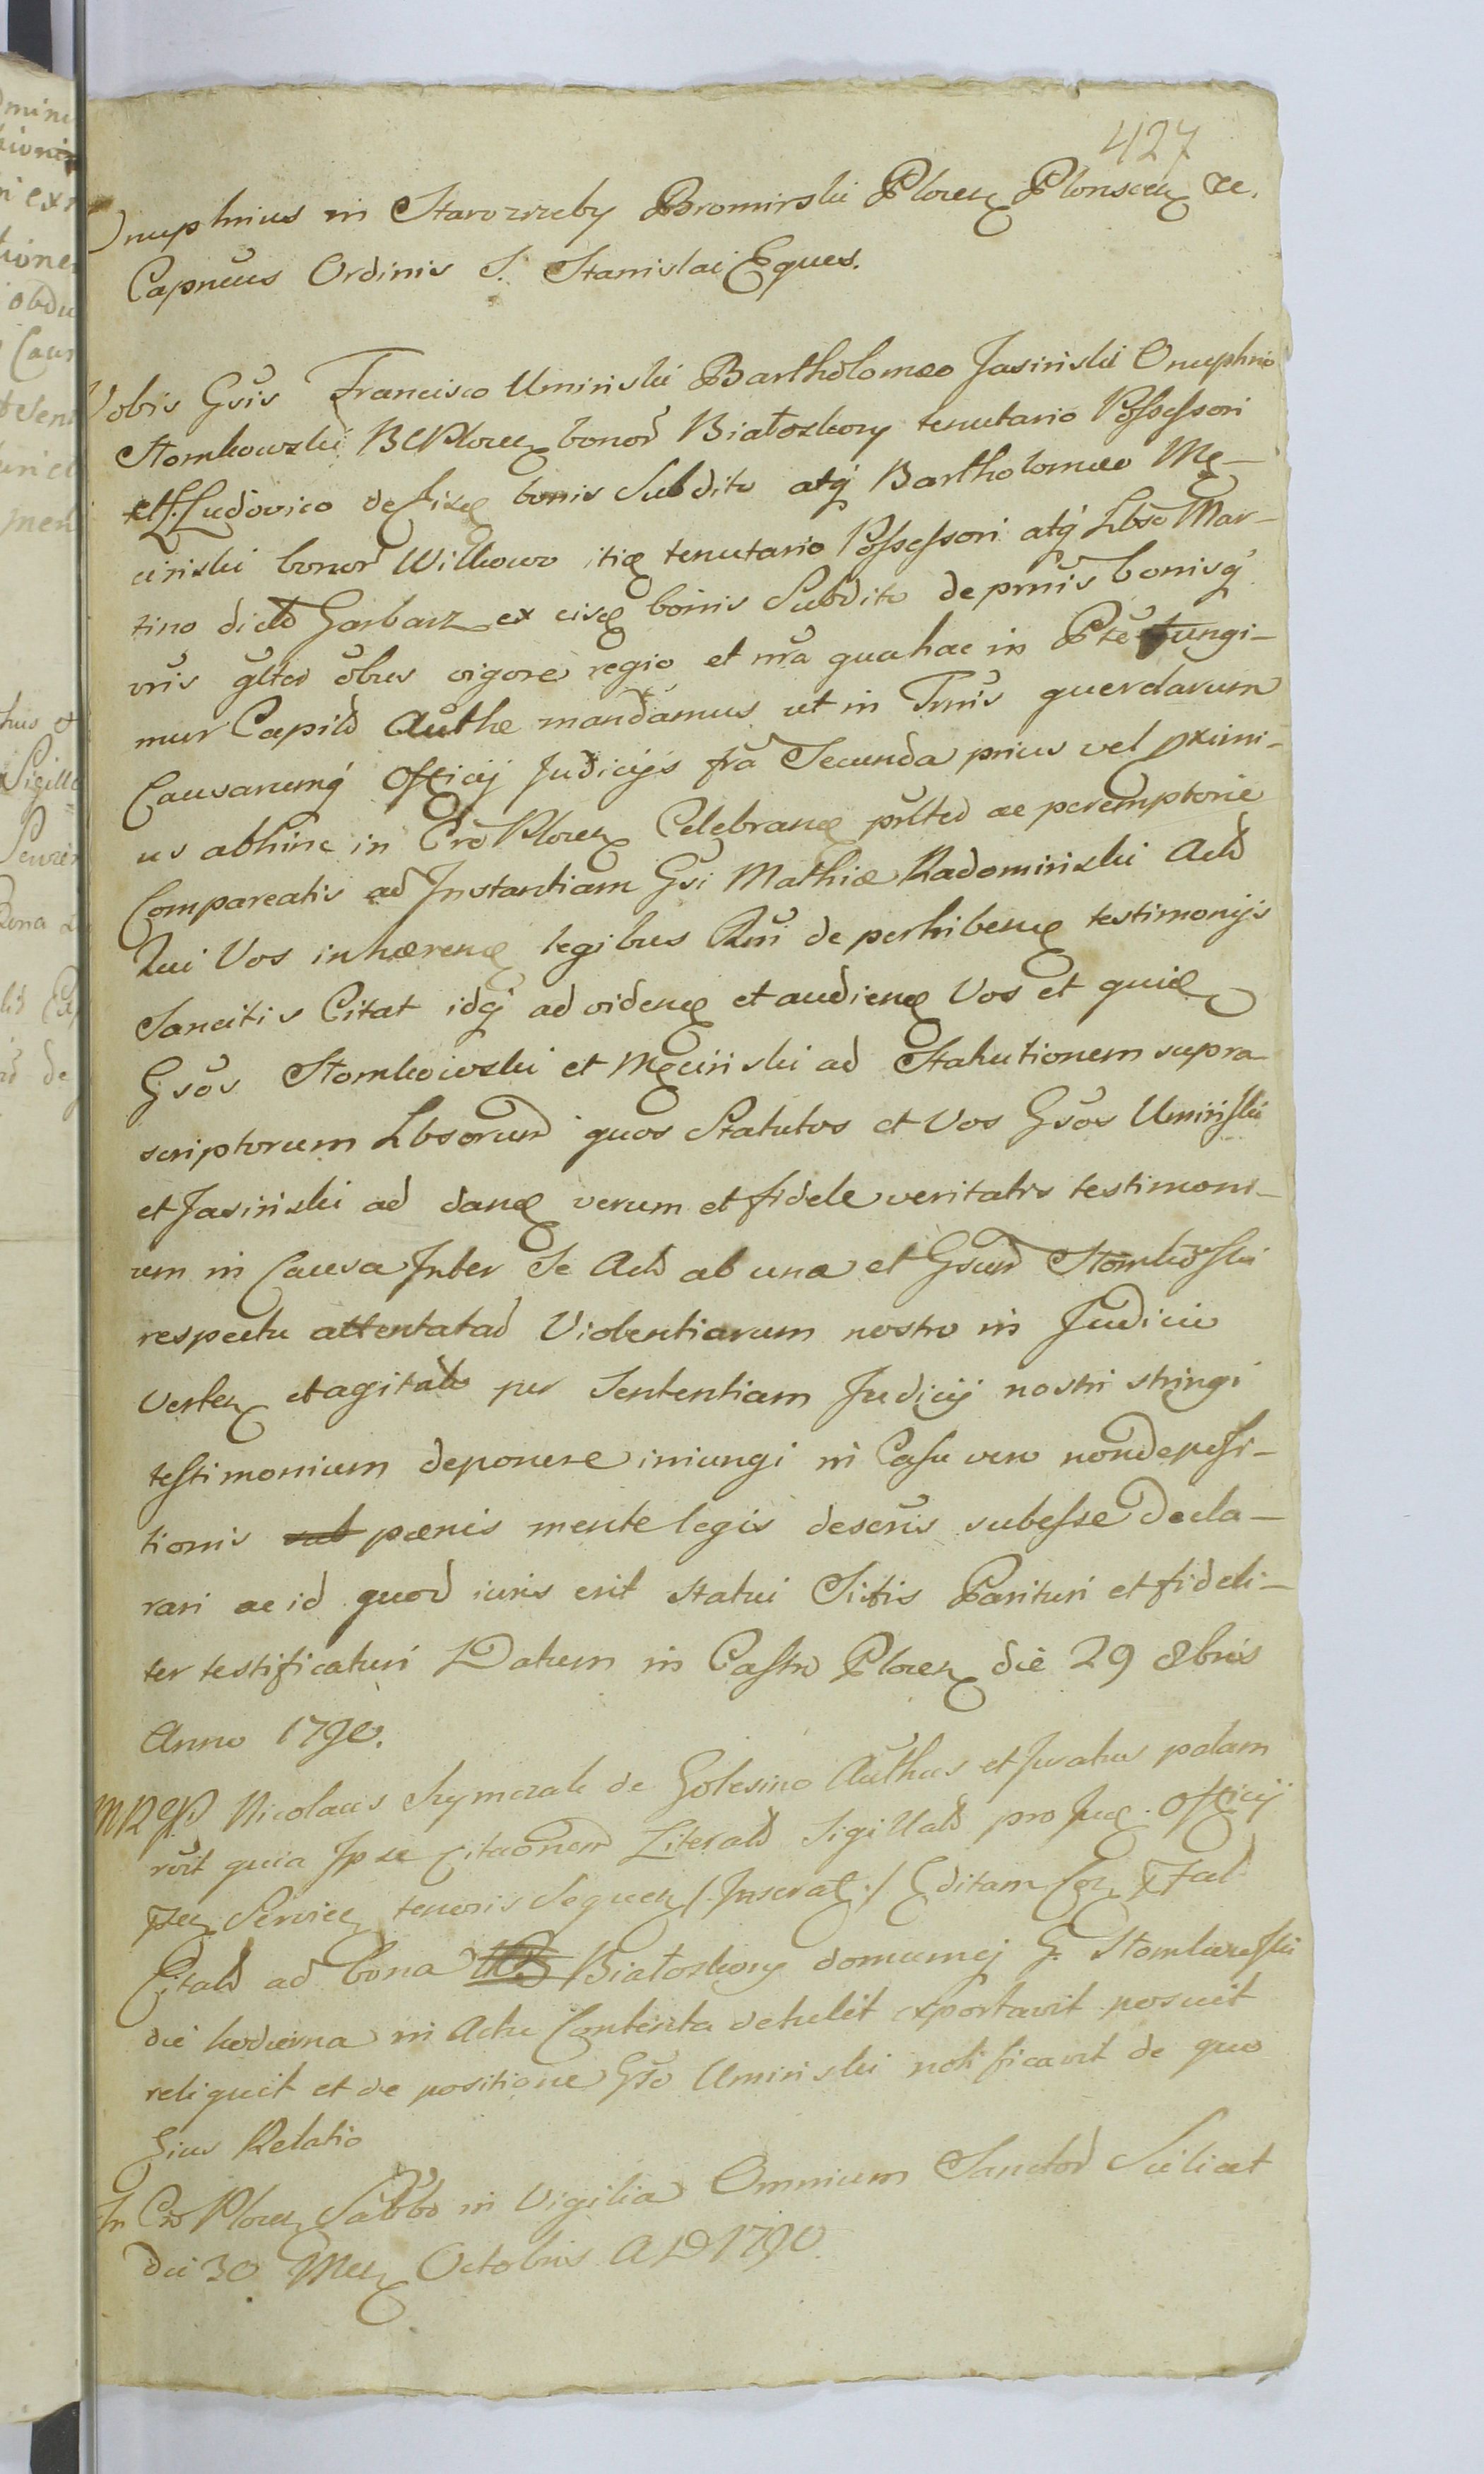 427
Onuphrius in Starozreby Bromirski Plocen Plonscen &c.
Capneus Ordinis S. Stanislai Eques.
Vobis Gsis Francisco Uminski Bartholomeo Jasinski Onuphrio
Stomkowski BCPlocen bonor Białoskory tenutario Possessori
et L. Ludovico de iisd bonis Subdito atq Bartholomeo Mę-
cinski bonor Wilkowo itid tenutario Possessori atq Lbso Mar-
tino dicto Garbarz ex eisd bonis Subdito de prmis bonisq
vris gltr obus vigore regio et nra qua hac in Pte fungi-
mur Capitl Authe mandamus ut in Trmis querelarum
Causarumq Officij Judicijs fra Secunda prius vel proximi-
us abhinc in Cro Plocen Celebrand prltr ac peremptorie
Compareatis ad Instantiam Gsi Mathiæ Radominski Act
Qui Vos inhærend legibus Rni de perhibend testimonijs
Sancitis Citat idq ad vidend et audiend Vos et quid
Gsos Stomkowski et Męcinski ad Statutionem supra
scriptorum Lbsorum quos Statutos et Vos Gsos Uminski
et Jasinski ad dand verum et fidele veritatis testimoni-
um in Causa Inter Se Act ab una et Gsum Stomkowski
respectu attentatar Violentiarum nostro in Judicio
Verten et agitat per Sententiam Judicij nostri stringi
testimonium deponere iniungi in Casu vero non deposi-
tionis sub pænis mente legis descris subesse decla-
rari ac id quod iuris erit statui Sitis Parituri et fideli-
ter testificaturi Datum in Castro Plocen die 29 8bris
Anno 1790.
Nicolaus Szymczak de Golesino Authus et Juratus palam
rcvit quia Ipse Citaonem Literal Sigillat pro Jud. Officij
tenoris Sequen /: Inserat :/ Editam
Citat ad bona Białoskory domumq G. Stomkowski
die hodierna in Actu Contenta detulit exportavit posuit
reliquit et de positione Gso Uminski notificavit de quo
Eius Relatio
In Cro Plocen Sabbo in Vigilia Omnium Sanctor Scilicet
die 30 Men Octobris A D 1790.